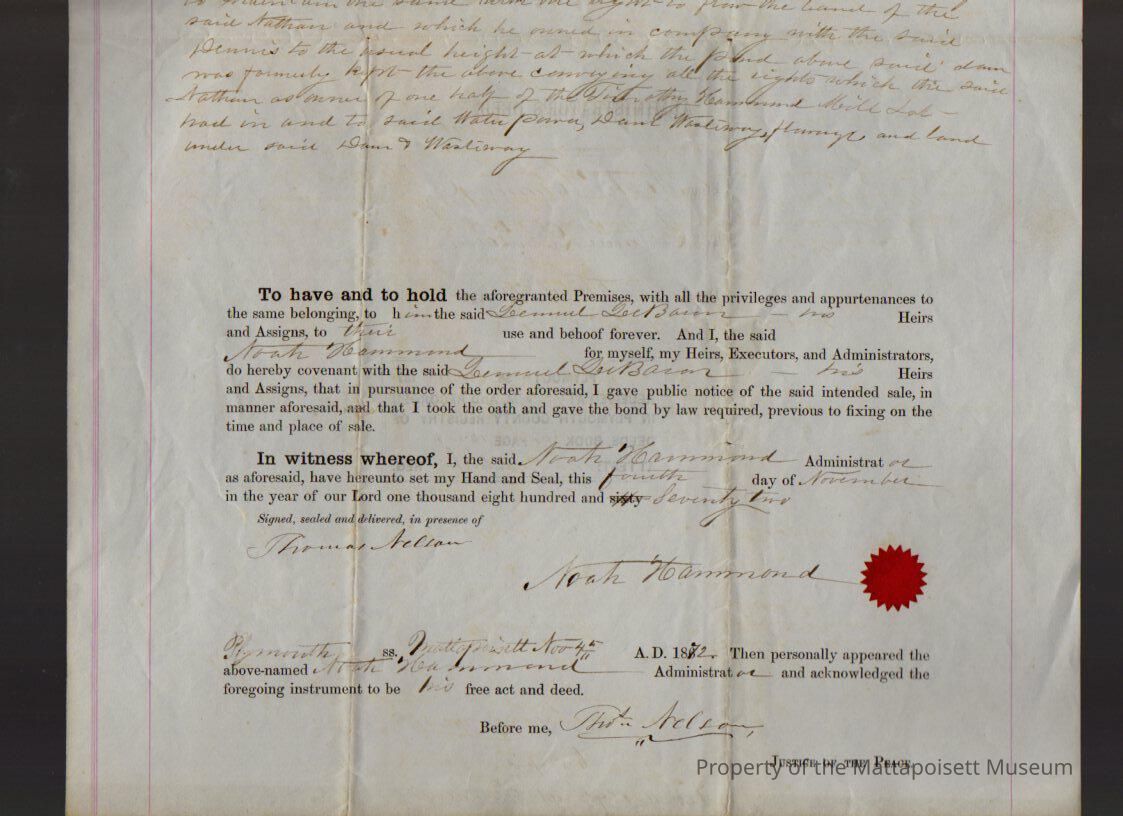 to maintain the same with the right to flow the land of the
said Nathan and which he owned in company with the said
Dennis to the usual height at which the pond above said dam
was formerly kept the above conveying all the rights which the said
Nathan as owner of one half of the Timothy Hammond Mill Lot
had in and to said Water power, Dam Wasteway, flowage and land
under said Dam & Wasteway
To have and to hold the aforegranted Premises, with all the privileges and appurtenances to
the same belonging, to him the said Lemuel LeBaron - his Heirs
and Assigns, to their use and behoof forever. And I, the said
Noah Hammond for myself, my Heirs, Executors, and Administrators,
do hereby covenant with the said Lemuel LeBaron - his Heirs
and Assigns, that in pursuance of the order aforesaid, I gave public notice of the said intended sale, in
manner aforesaid, and that I took the oath and gave the bond by law required, previous to fixing on the
time and place of sale.
In witness whereof, I, the said Noah Hammond Administrator
as aforesaid, have hereunto set my Hand and Seal, this fourth day of November
in the year of our Lord one thousand eight hundred and sixty Seventy two
Signed, sealed and delivered, in presence of
Thomas Nelson
Noah Hammond
Plymouth ss. Mattapoisett Nov 4th A.D. 1872. Then personally appeared the
above-named Noah Hammond Administrator and acknowledged the
foregoing instrument to be his free act and deed.
Before me, Thos. Nelson,
Justice of the Peace
Property of the Mattapoisett Museum